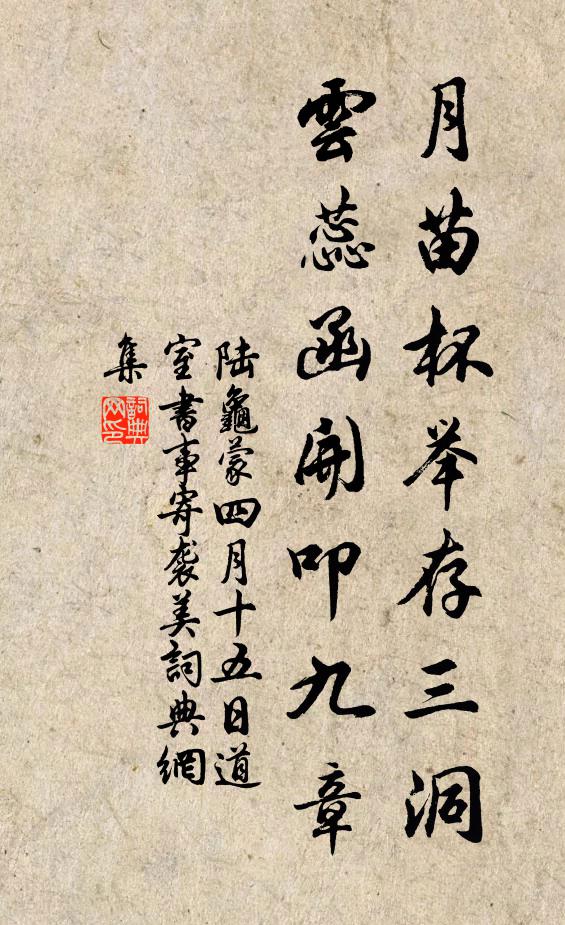 月苗杯举存三洞
雲蕊函開叩九章
陆龜蒙四月十五日道
室書事寄袭美詞典網
集
詞典
网印